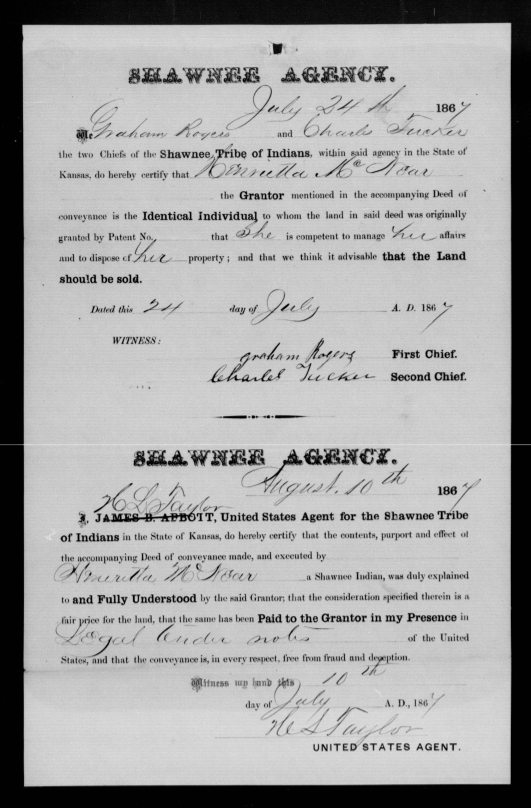 SHAWNEE AGENCY.
July 24th 1867
We Graham Rogers and Charles Tucker
the two Chiefs of the Shawnee Tribe of Indians, within said agency in the State of
Kansas, do hereby certify that Henrietta Mc Noar
the Grantor mentioned in the accompanying Deed of
conveyance is the Identical Individual to whom the land in said deed was originally
granted by Patent No. that She is competent to manage her affairs
and to dispose of her property; and that we think it advisable that the Land
should be sold.
Dated this 24 day of July A. D. 1867
WITNESS:
graham Rogers First Chief.
Charles Tucker Second Chief.
SHAWNEE AGENCY.
August. 10th 1867
H L Taylor
I, JAMES B. ABBOTT, United States Agent for the Shawnee Tribe
of Indians in the State of Kansas, do hereby certify that the contents, purport and effect of
the accompanying Deed of conveyance made, and executed by
Henrietta Mc Noar a Shawnee Indian, was duly explained
to and Fully Understood by the said Grantor; that the consideration specified therein is a
fair price for the land, that the same has been Paid to the Grantor in my Presence in
Legal tender notes of the United
States, and that the conveyance is, in every respect, free from fraud and deception.
Witness my hand this 10th
day of July A. D., 1867
H L Taylor
UNITED STATES AGENT.